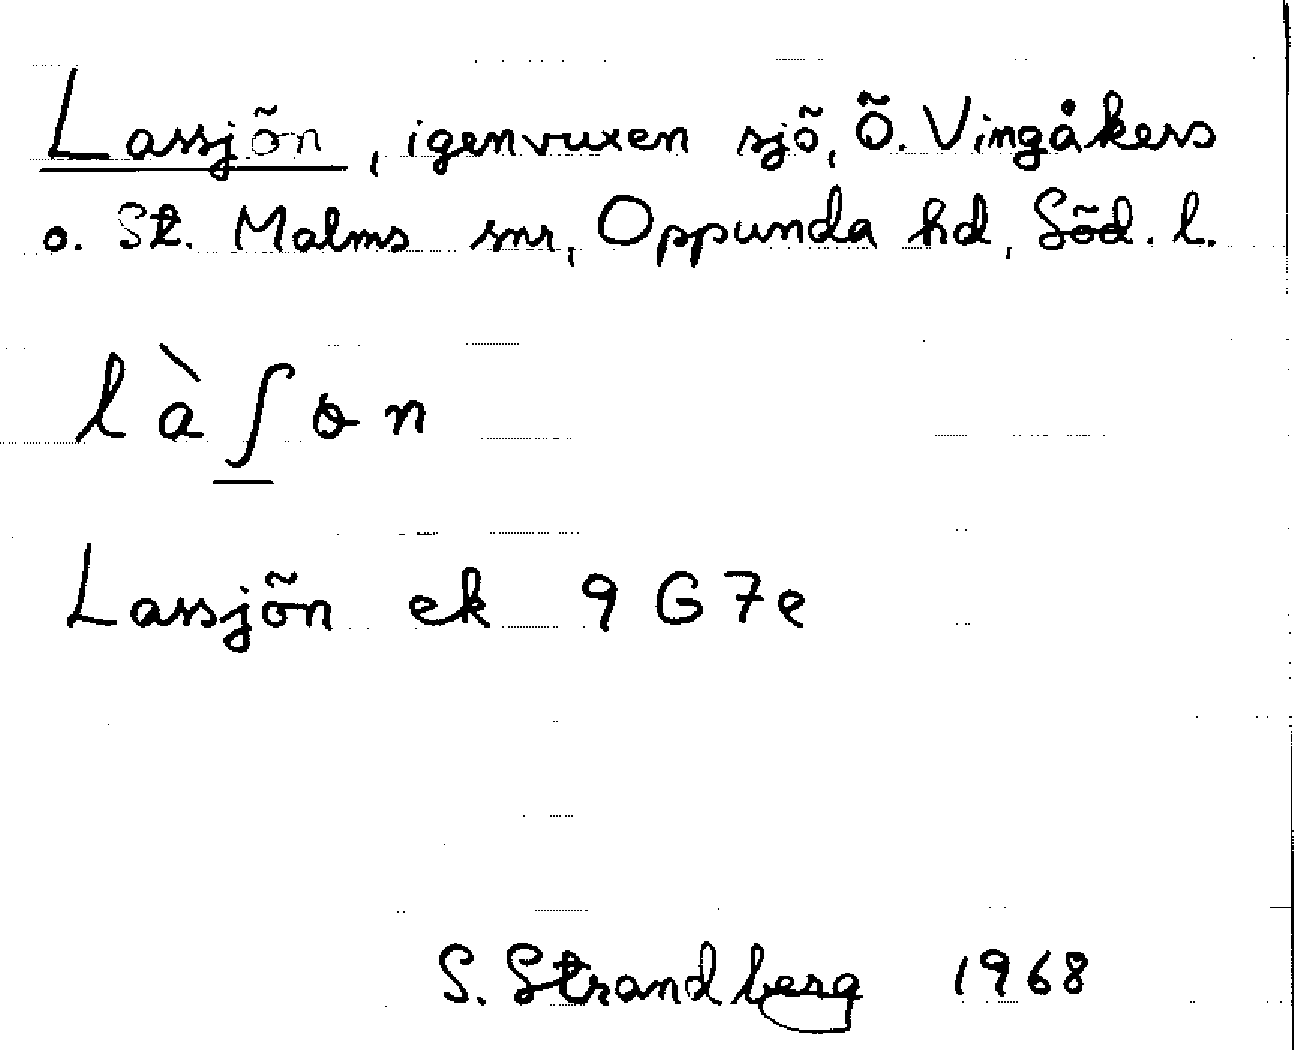 Lassjön, igenvuxen sjö, Ö. Vingåkers
o. St. Malms snr, Oppunda hd, Söd. l.
là ʃ ɵ n
Lassjön ek 9 G 7e
S. Strandberg 1968